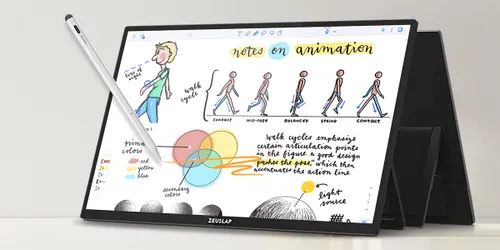 notes on animation
line of sight
walk cycle
CONTACT MID-POSE BALANCED SPRING CONTACT
primary colors
red
yellow
blue
secondary colors
walk cycles emphasize
certain articulation points
in the figure. a good design
"pushes the pose," which then
accentuates the action line
light source
ZEUSLAP